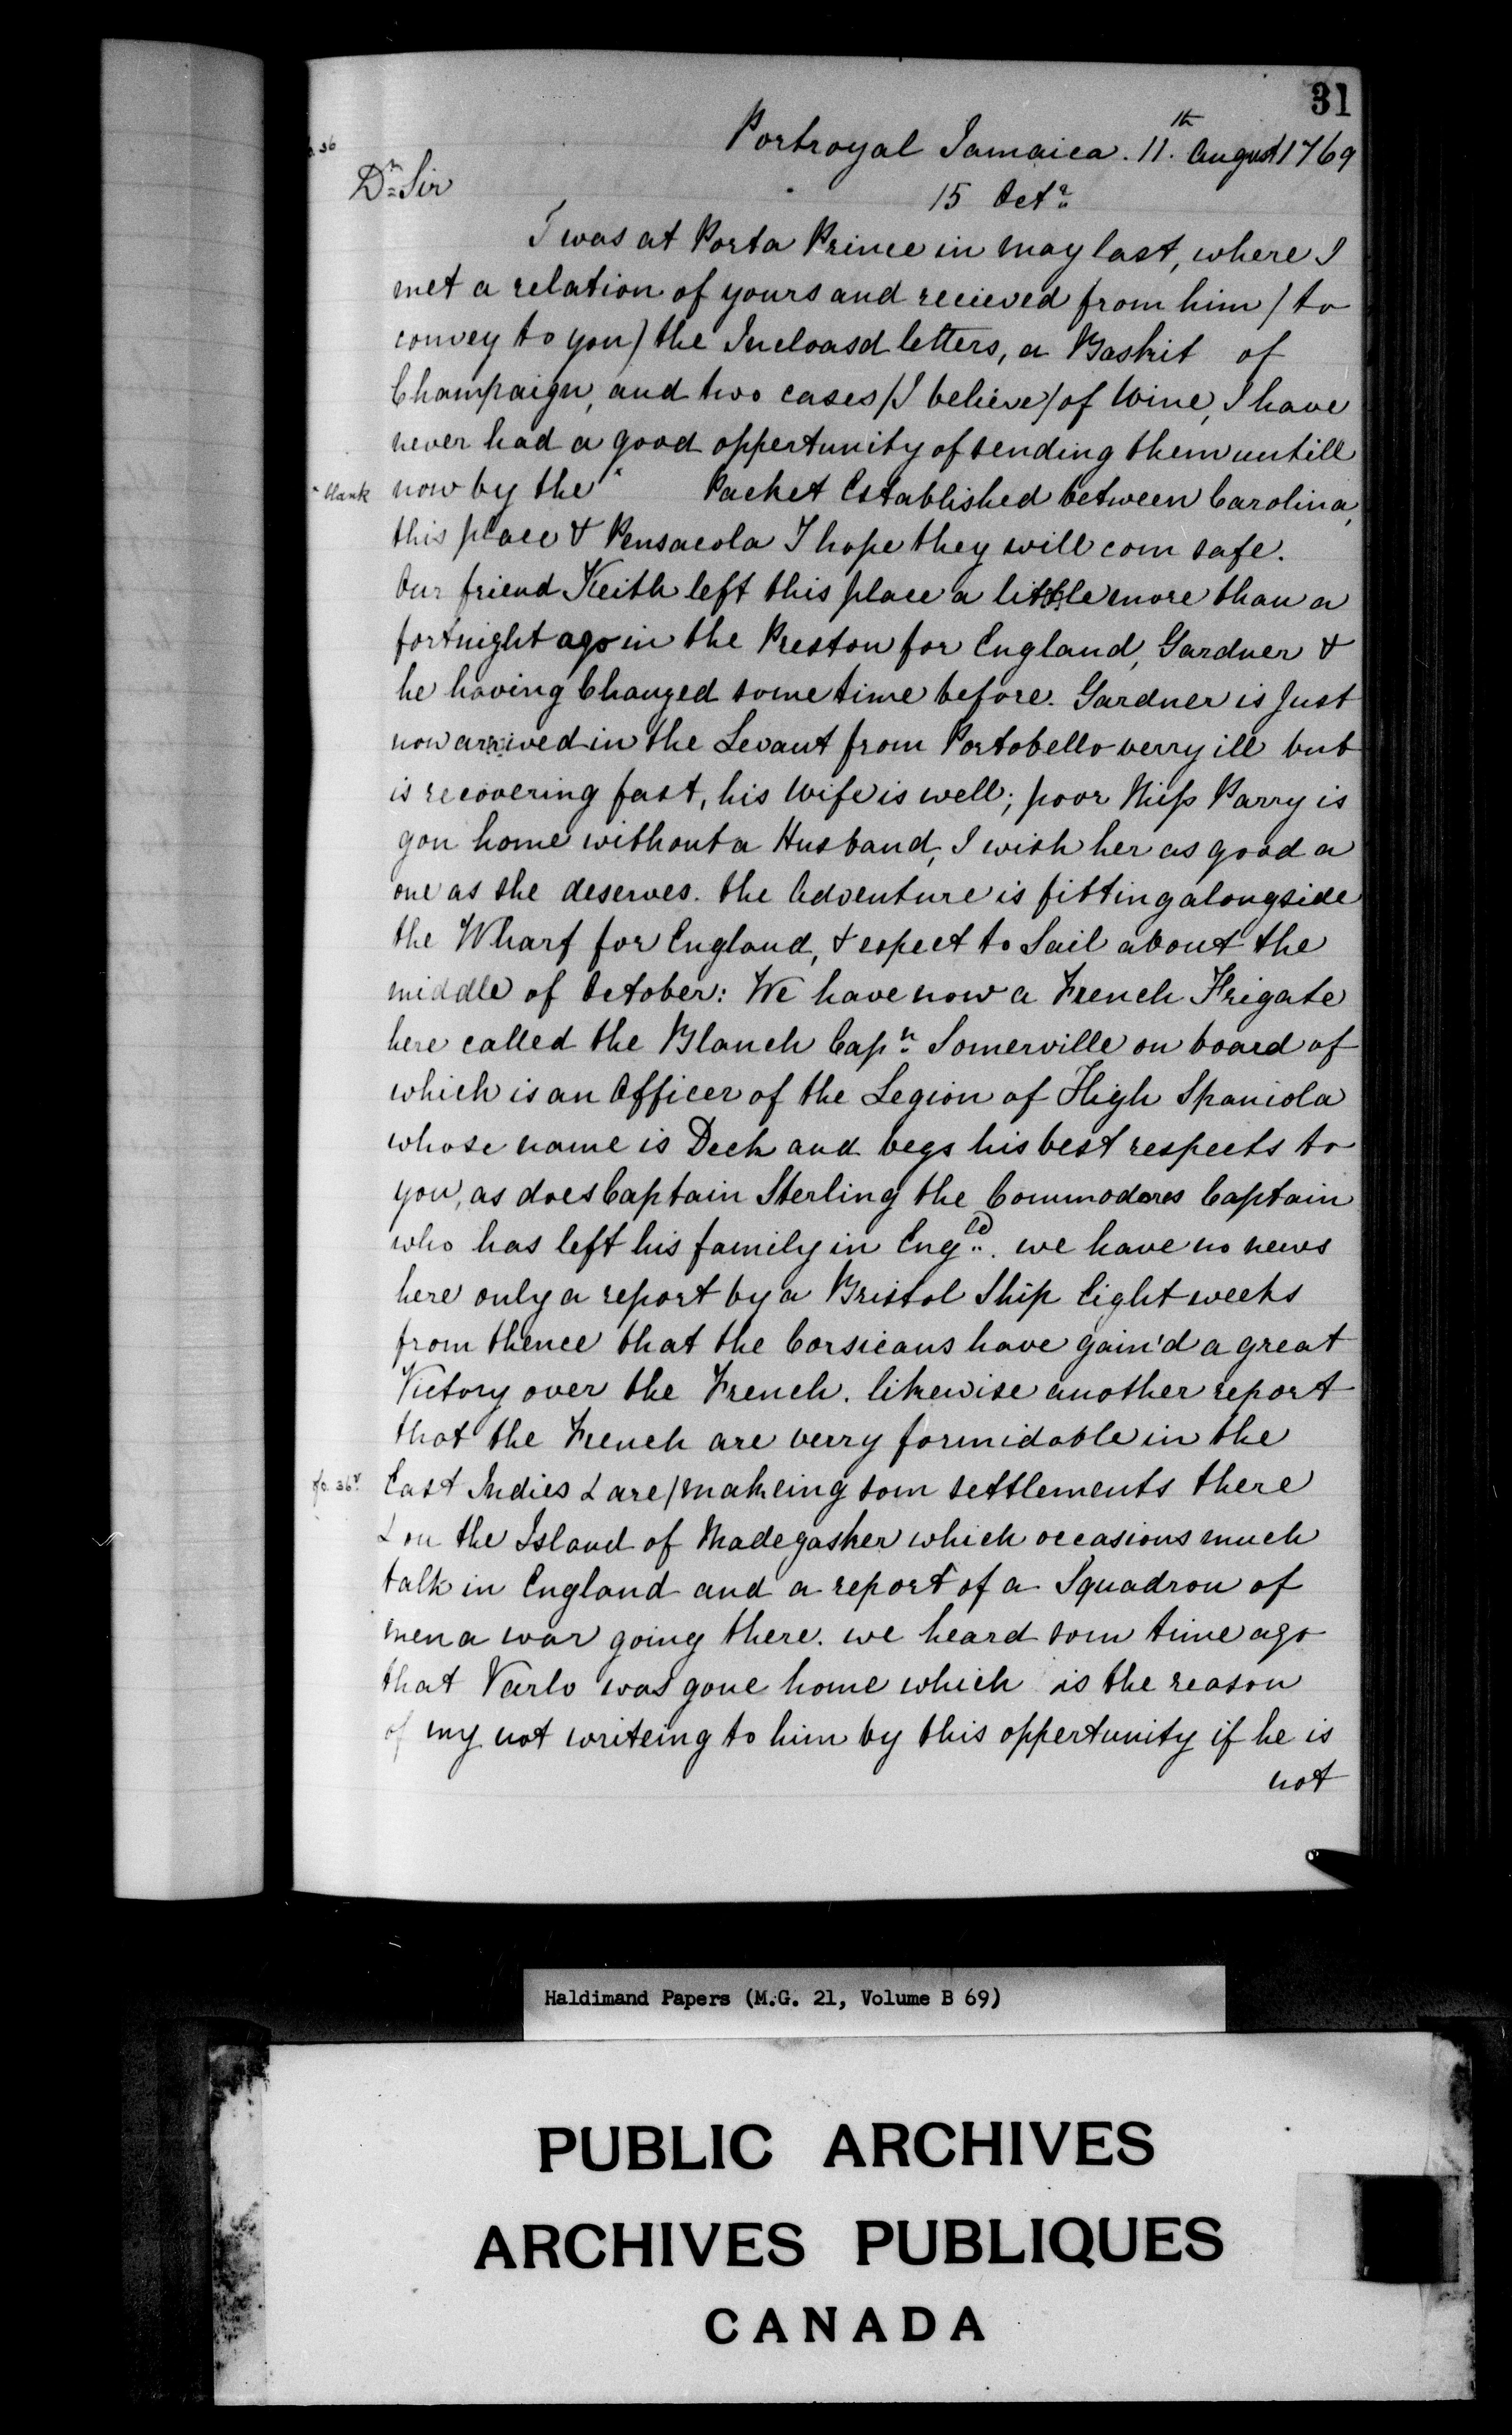 31
fo. 36
Portroyal Jamaica. 11.th August 1769
Dr Sir
15 Octr
I was at Porta Prince in may last, where I
met a relation of yours and recieved from him / to
convey to you / the Incloasd letters, a Baskit of
Champaign, and two cases / I believe / of Wine, I have
never had a good oppertunity of sending them untill
" blank
now by the " Packet Established between Carolina,
this place & Pensacola I hope they will com safe.
Our friend Keith left this place a little more than a
fortnight ago in the Preston for England, Gardner &
he having Changed some time before. Gardner is Just
now arrived in the Levant from Portobello verry ill but
is recovering fast, his Wife is well; poor Miss Parry is
gon home without a Husband, I wish her as good a
one as she deserves. the Adventure is fitting alongside
the Wharf for England, & espect to Sail about the
middle of October: We have now a French Frigate
here called the Blanch Capn Somerville on board of
which is an Officer of the Legion of High Spaniola
whose name is Deck and begs his best respects to
you, as does Captain Sterling the Commodores Captain
who has left his family in Engld. we have no news
here only a report by a Bristol Ship Eight weeks
from thence that the Corsicans have gain'd a great
Victory over the French. likewise another report
that the French are verry formidable in the
fo. 36v
East Indies & are / makeing som settlements there
& on the Island of Madegasker which occasions much
talk in England and a report of a Squadron of
men a war going there. we heard som time ago
that Varlo was gone home which is the reason
of my not writeing to him by this oppertunity if he is
not
Haldimand Papers (M.G. 21, Volume B 69)
PUBLIC ARCHIVES
ARCHIVES PUBLIQUES
CANADA